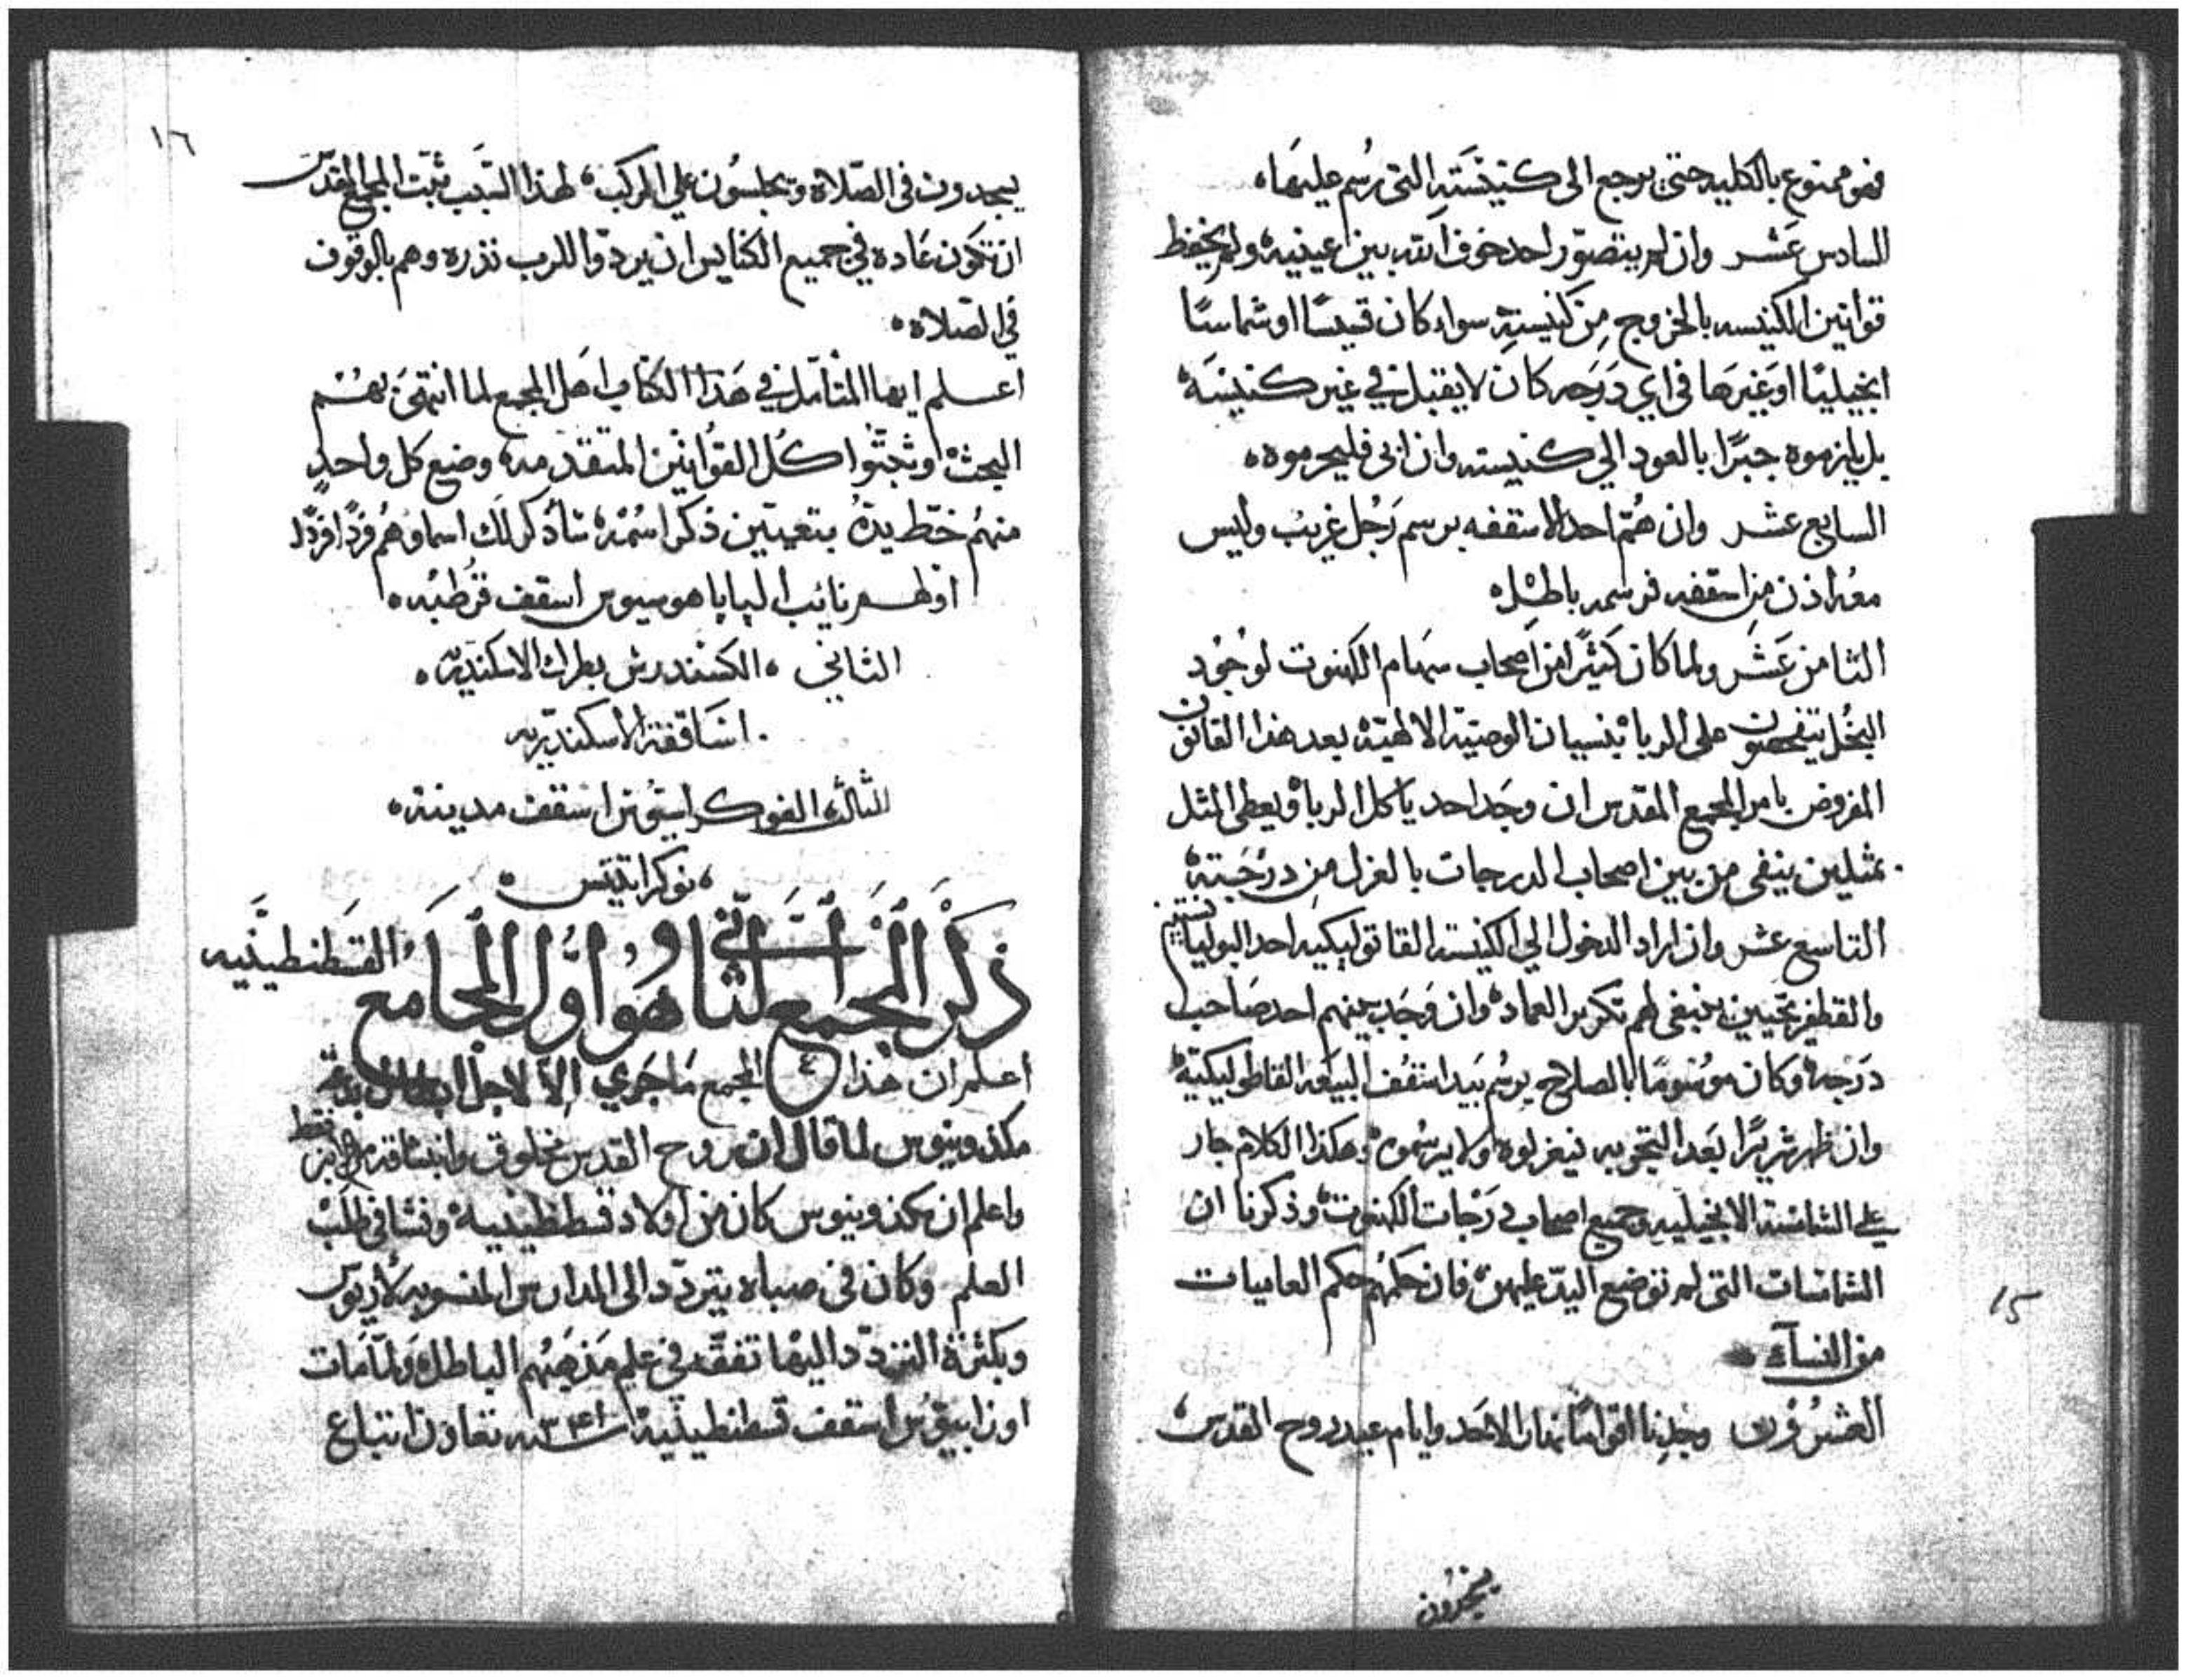 فهو ممنوع بالكليه حتى يرجع الى كنيسته التى رُسم عليها،
السادس عشر وان لم يتصوّر احد خوف الله بين عينيه ولم يحفظ
قوانين الكنيسه بالخروج من كنيسته سواء كان قسيسًا او شماسًا
انجيليًا او غيرها فى اي درجه كان لا يقبل في غير كنيسته
بل يلزموه جبرًا بالعود الي كنيسته وان ابى فليحرموه،
السابع عشر وان همّ احد الاسقفه برسم رجل غريب وليس
معه اذن من اسقفه فرسمه باطل
الثامن عشر ولما كان كثيرًا من اصحاب سهام الكهنوت لوجود
البخل يتفحصون على الربا بنسيان الوصية الالهية بعد هذا القانون
المفروض بامر المجمع المقدس ان وجد احد ياكل الربا ويعطى المثل
بمثلين ينفى من بين اصحاب الدرجات بالعزل من درجته
التاسع عشر وان اراد الدخول الي الكنيسه القاتوليكيه احد البوليانستيين
والقطفريجيين ينبغى لهم تكرير العماد وان وجد بينهم احد صاحب
درجه وكان موسومًا بالصلاح يرسم بيد اسقف البيعه القاطوليكية
وان ظهر شريرًا بعد التجربه فيعزلوه ولا يرسموه وهكذا الكلام جار
علي الشمامسة الانجيليه وجميع اصحاب درجات الكهنوت وذكرنا ان
الشماسات التى لم توضع اليد عليهن فان حكمهم حكم العاميات
من النسآء
العشرون وجدنا اقوامًا نهار الاحد وايام عيد روح القدس
يخرون
15
١٦
يسجدون فى الصلاة ويجلسون علي الركب، لهذا السبب ثبت المجمع المقدس
ان تكون عاده في جميع الكنايس ان يردوا للرب نذره وهم بالوقوف
في الصلاه،
اعلم ايها المتأمل في هذا الكتاب اهل المجمع لما انتهى بهم
البحث وثبتوا كل القوانين المتقدمه وضع كل واحد
منهم خط يده بتعيين ذكر اسمه، سأذكر لك اسماوهم فردًا فردًا
اولهم نائب البابا هوسيوس اسقف قرطبه،
الثاني، الكسندرس بطرك الاسكندريه،
اساقفة الاسكندريه
الثالث الفوكراسيون اسقف مدينة،
،نوكراتيس
ذكر المجمع الثاني وهو اول المجامع القسطنطينيه
اعلم ان هذا ٤ المجمع ما جري الا لاجل ابطال بدعة
مكدونيوس لما قال ان روح القدس مخلوق وانبثاقه من الابن فقط
واعلم ان مكدونيوس كان من اولاد قسطنطينية ونشا في طلب
العلم وكان فى صباه يتردد الى المدارس المنسوبه لأريوس
وبكثرة التردد اليها تفقه في علم مذهبهم الباطل ولما مات
اوزابيوس اسقف قسطنطينية سنه ٣٤١ تعاون اتباع